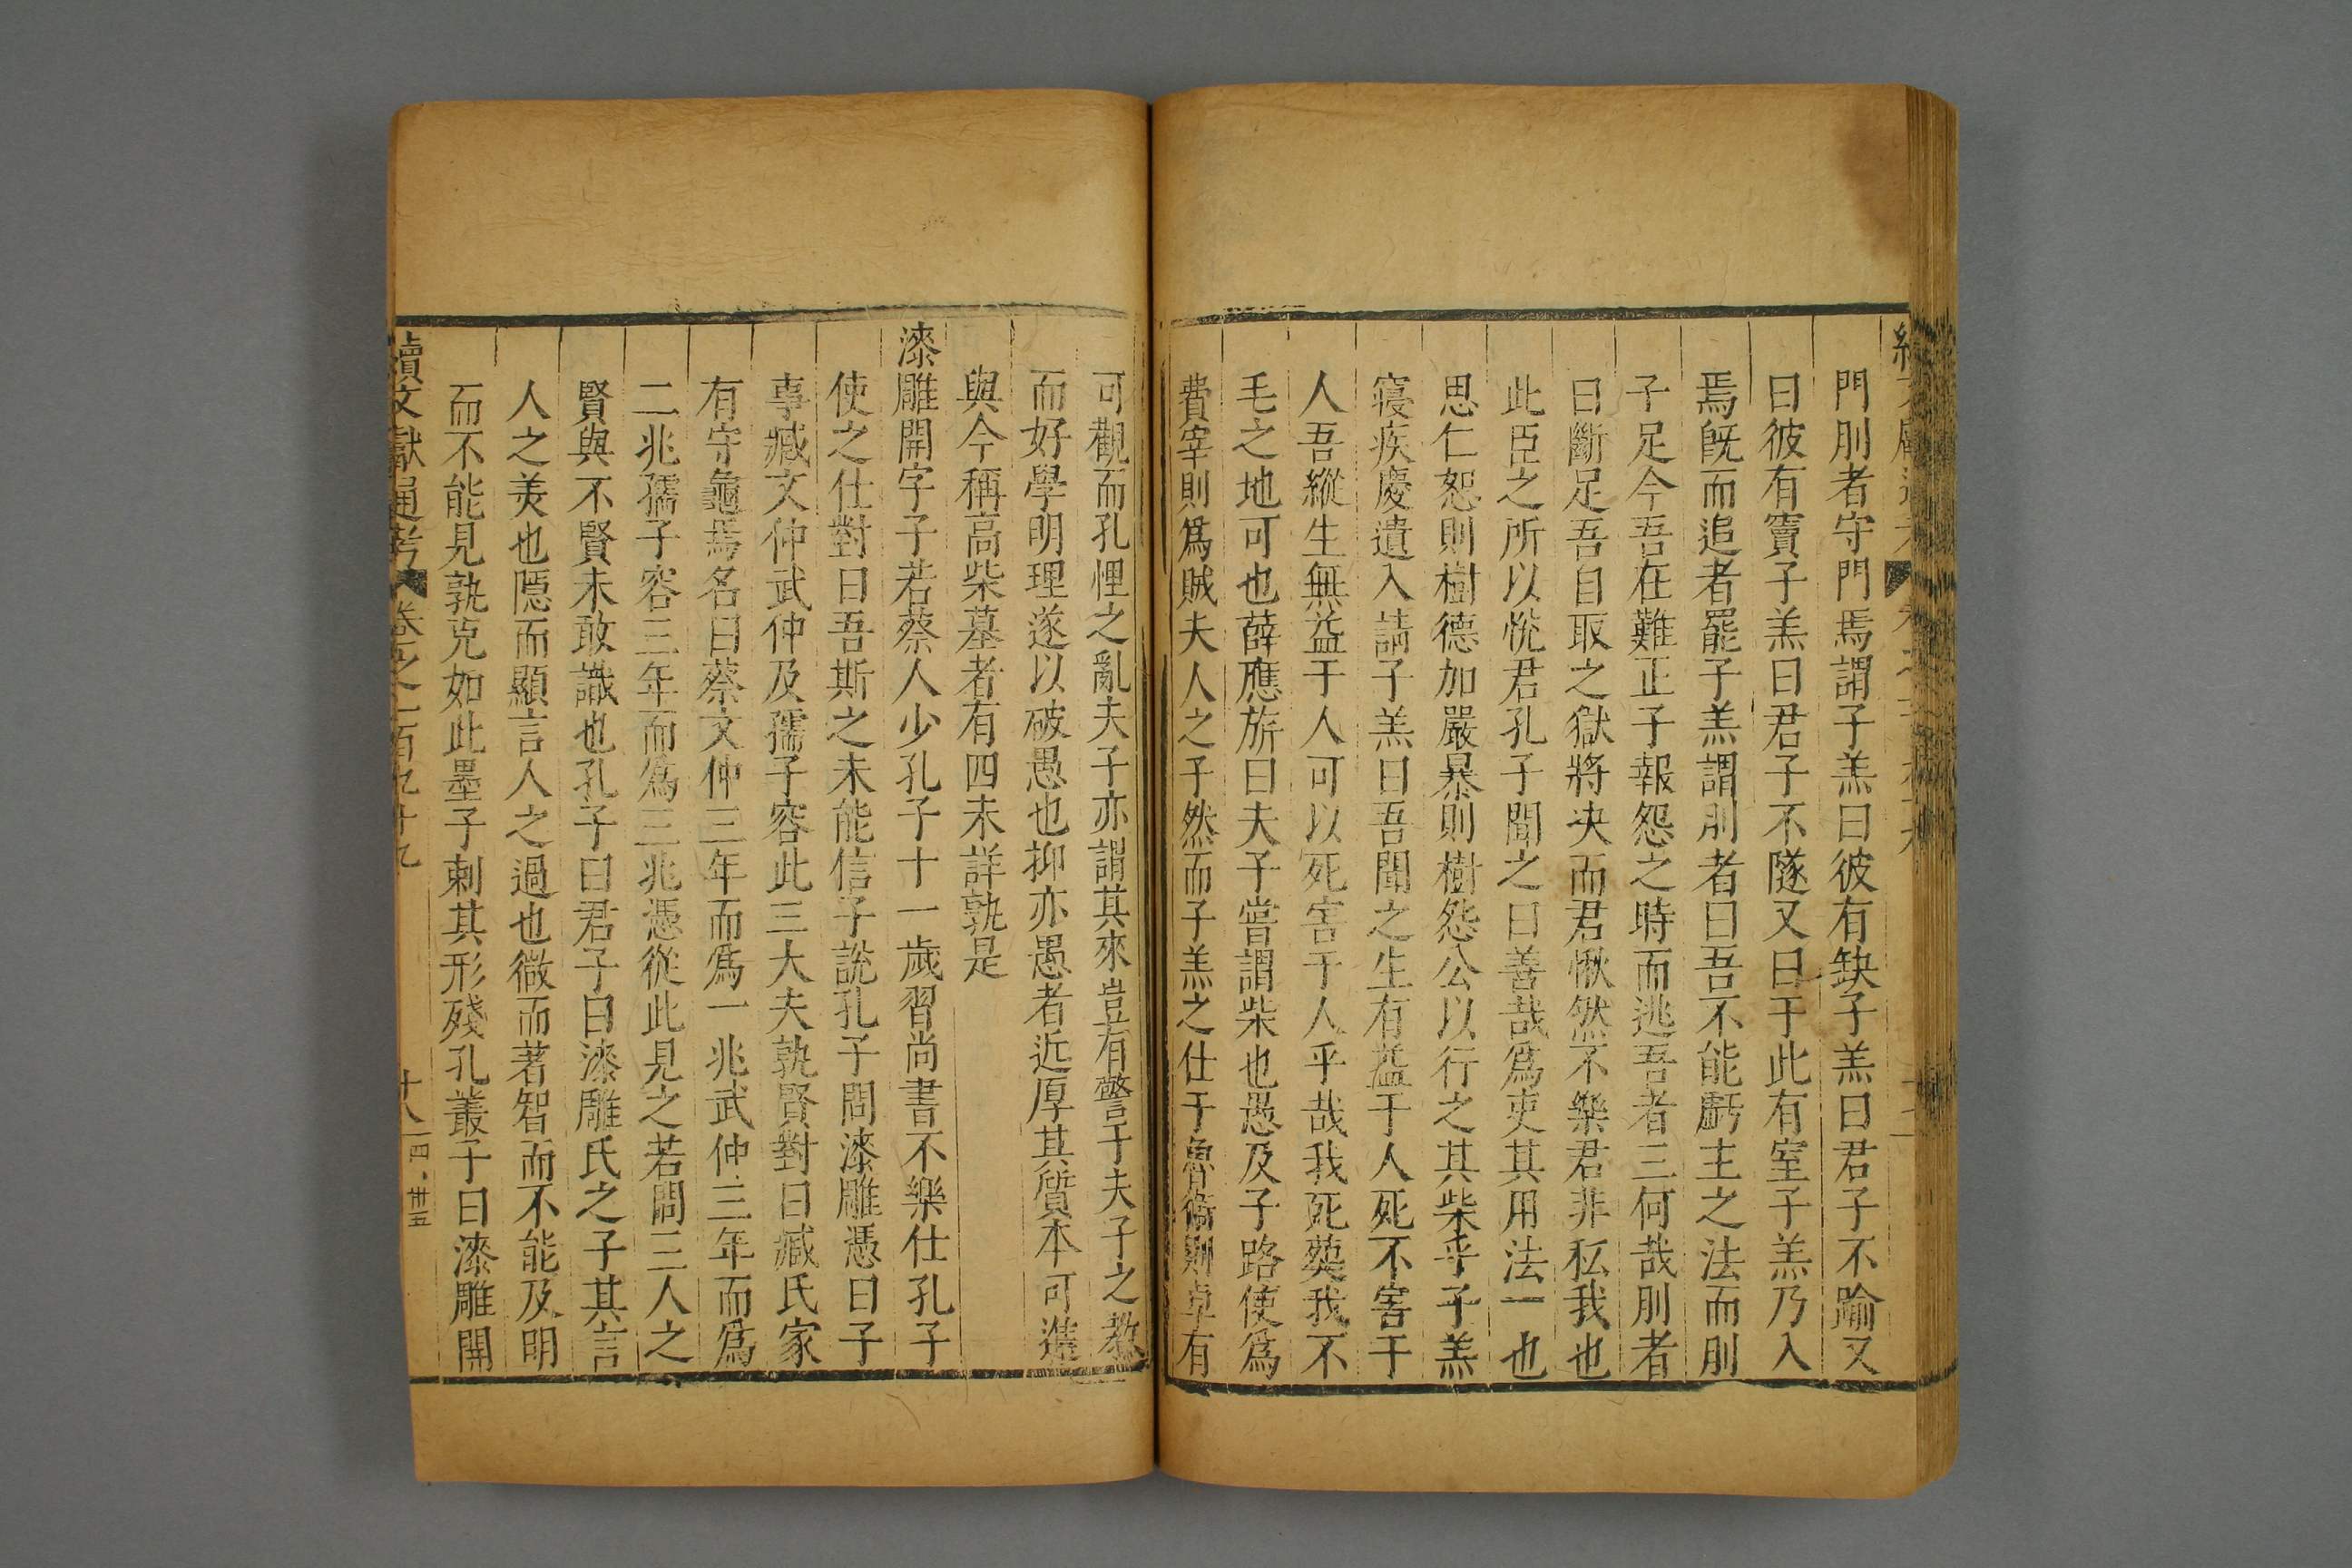 門刖者守門焉謂子羔曰彼有缺子羔曰君子不踰又
曰彼有竇子羔曰君子不隧又曰于此有室子羔乃入
焉旣而追者罷子羔謂刖者曰吾不能虧主之法而刖
子足今吾在難正子報怨之時而逃吾者三何哉刖者
曰斷足吾自取之獄將决而君愀然不樂君非私我也
此臣之所以悅君孔子聞之曰善哉爲吏其用法一也
思仁恕則樹德加嚴暴則樹怨公以行之其柴乎子羔
寢疾慶遺入請子羔曰吾聞之生有益于人死不害于
人吾縱生無益于人可以死害于人乎哉我死葬我不
毛之地可也薛應旂曰夫子嘗謂柴也愚及子路使爲
費宰則爲賊夫人之子然而子羔之仕于魯衞則卓有
可觀而孔悝之亂夫子亦謂其來豈有警于夫子之教
而好學明理遂以破愚也抑亦愚者近厚其質本可造
與今稱高柴墓者有四未詳孰是
漆雕開字子若蔡人少孔子十一歲習尚書不樂仕孔子
使之仕對曰吾斯之未能信子說孔子問漆雕憑曰子
事臧文仲武仲及孺子容此三大夫孰賢對曰臧氏家
有守龜焉名曰蔡文仲三年而爲一兆武仲三年而爲
二兆孺子容三年而爲三兆憑從此見之若問三人之
賢與不賢未敢識也孔子曰君子曰漆雕氏之子其言
人之美也隱而顯言人之過也微而著智而不能及明
而不能見孰克如此墨子剌其形殘孔叢子曰漆雕開
續文獻通考 卷之一百九十九 十八 四·卅五